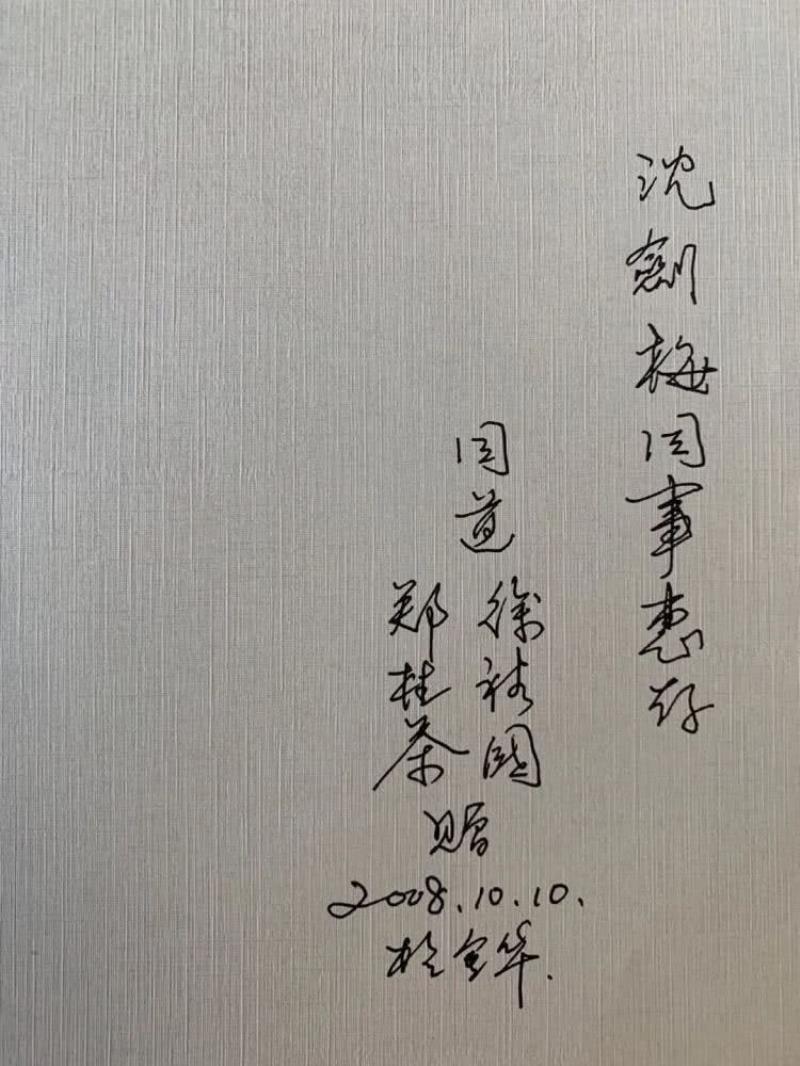 沈劍梅同事惠存
同道
徐秫國
郑桂荼
赠
2008.10.10.
于金华.